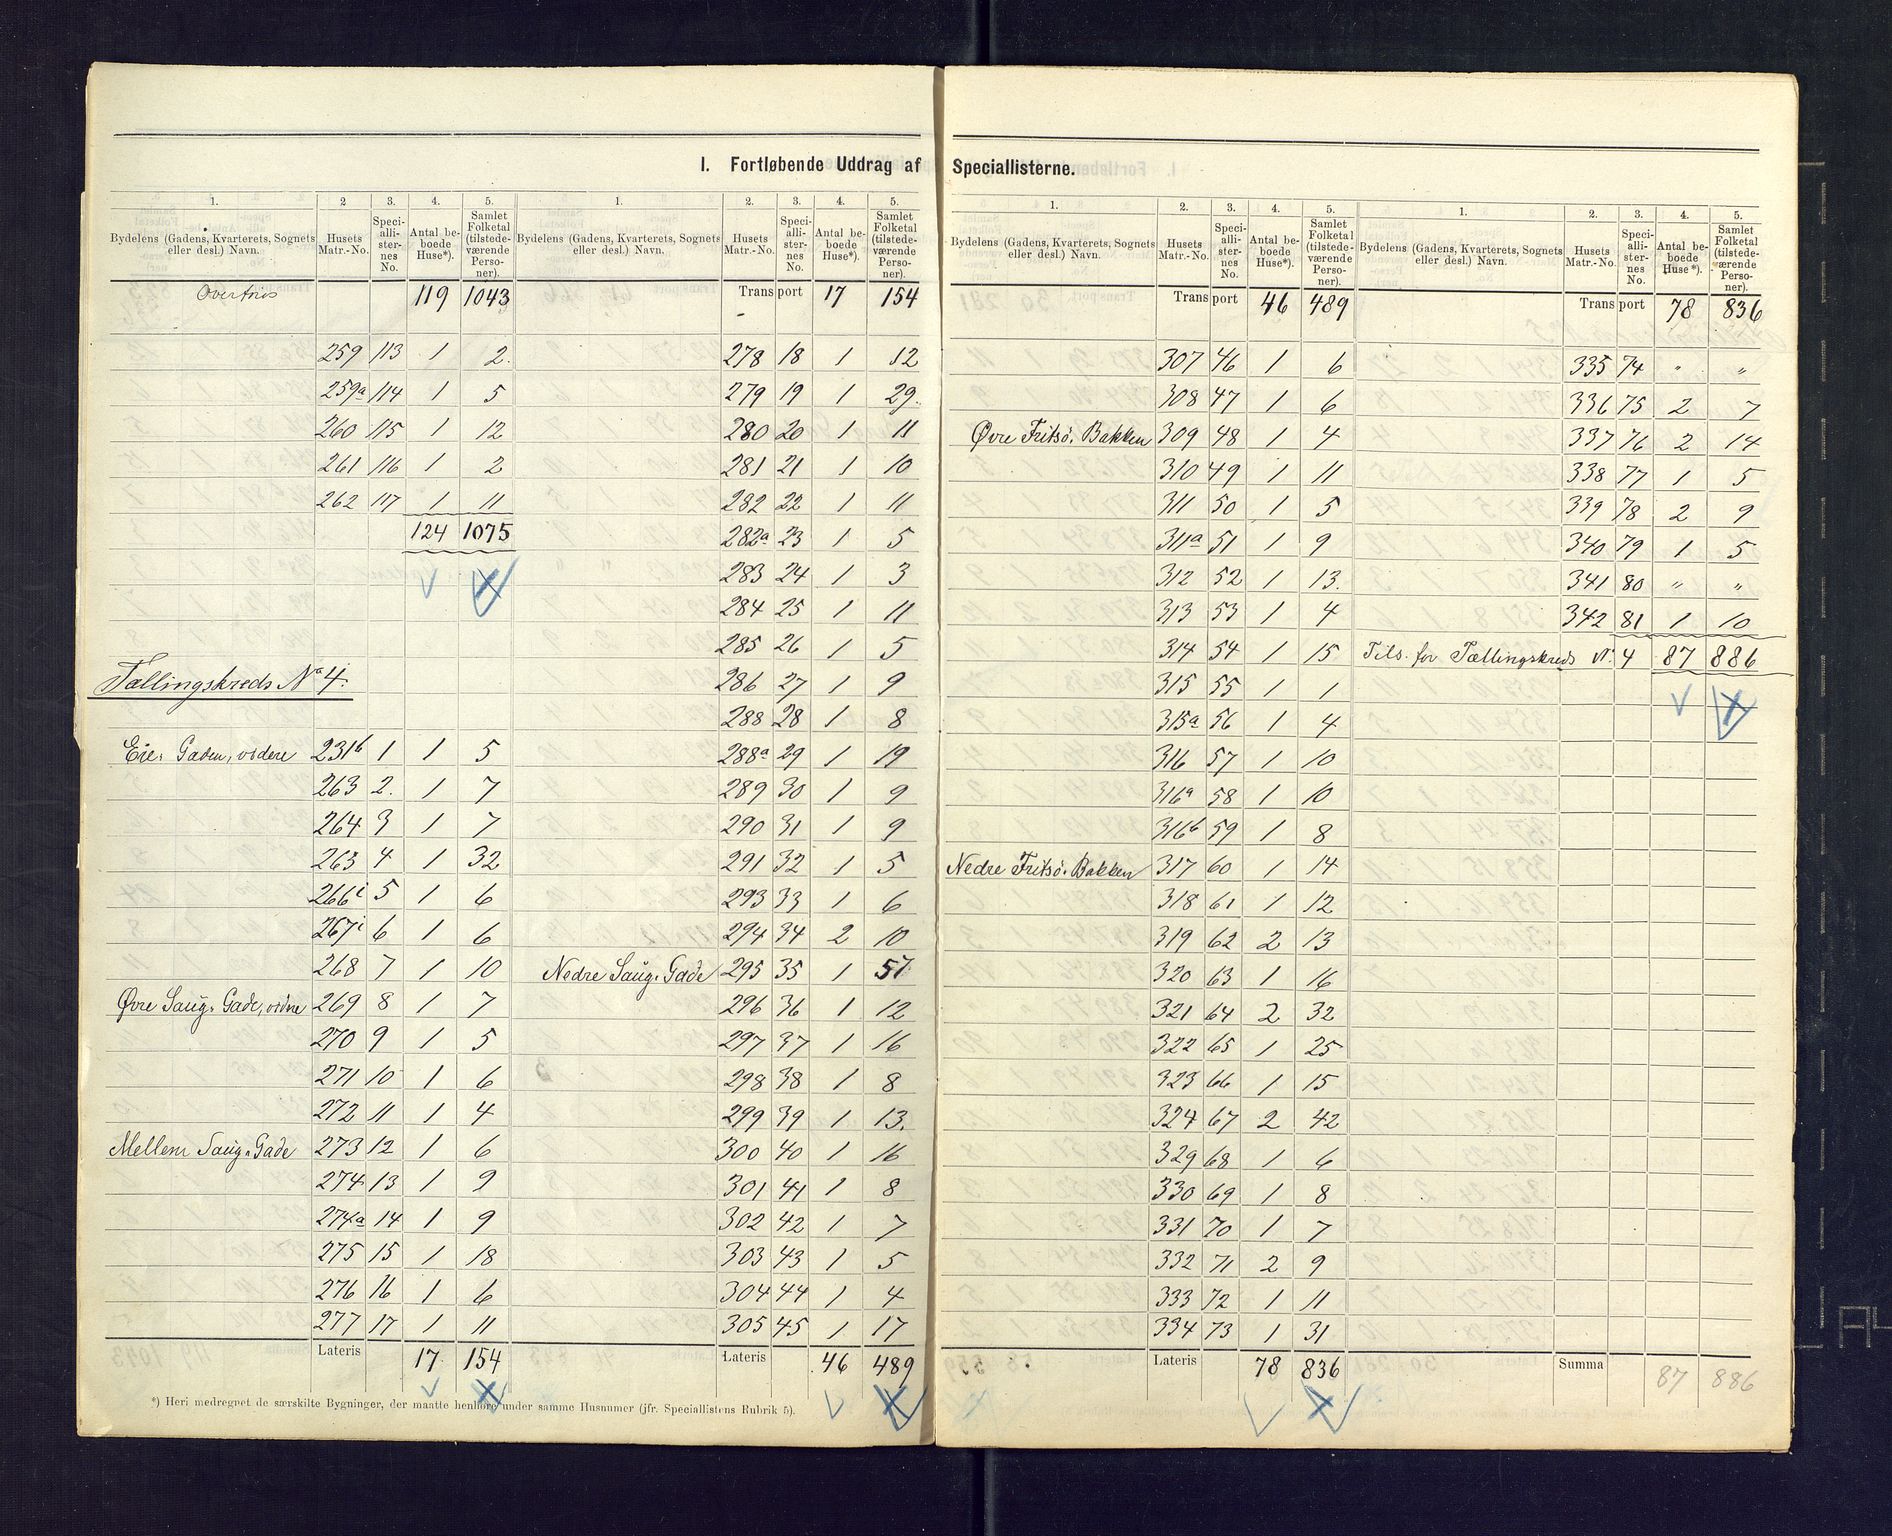 I. Fortløbende Uddrag af Speciallisterne.
1. 2 3. 4. 5.
Bydelens (Gadens, Kvarterets, Sognets eller desl.) Navn. Husets Matr.-No. Speciallisternes No. Antal beboede Huse*). Samlet Folketal (tilstedeværende Personer).
119 1043
259 113 1 2.
259a 114 1 5
260 115 1 12
261 116 1 2
262 117 1 11
124 1075
Tællingskreds No 4.
Eie-Gaden, videre 231b 1 1 5
263 2. 1 7
264 3 1 7
263 4 1 32
266i 5 1 6
267i 6 1 6
268 7 1 10
Øvre Saug-Gade, videre 269 8 1 7
270 9 1 5
271 10 1 6
272 11 1 4
Mellem Saug-Gade 273 12 1 6
274 13 1 9
274a 14 1 9
275 15 1 18
276 16 1 6
277 17 1 11
Lateris 17 154
*) Heri medregnet de særskilte Bygninger, der maatte henhøre under samme Husnumer (jfr. Speciallistens Rubrik 5).
1. 2. 3. 4. 5.
Bydelens (Gadens, Kvarterets, Sognets eller desl.) Navn. Husets Matr.-No. Speciallisternes No. Antal beboede Huse*). Samlet Folketal (tilstedeværende Personer).
Transport 17 154
278 18 1 12
279 19 1 29.
280 20 1 11
281 21 1 10
282 22 1 11
282a 23 1 5
283 24 1 3
284 25 1 11
285 26 1 5
286 27 1 9
288 28 1 8
288a 29 1 19
289 30 1 9
290 31 1 9
291 32 1 5
293 33 1 6
294 34 2 10
Nedre Saug-Gade 295 35 1 57
296 36 1 12
297 37 1 16
298 38 1 8
299 39 1 13.
300 40 1 16
301 41 1 8
302 42 1 7
303 43 1 5
304 44 1 4
305 45 1 17
Lateris 46 489
1. 2. 3. 4. 5.
Bydelens (Gadens, Kvarterets, Sognets eller desl.) Navn. Husets Matr.-No. Speciallisternes No. Antal beboede Huse*). Samlet Folketal (tilstedeværende Personer).
Transport 46 489
307 46 1 6
308 47 1 6
Øvre Fritsø-Bakken 309 48 1 4
310 49 1 11
311 50 1 5
311a 51 1 9
312 52 1 13.
313 53 1 4
314 54 1 15
315 55 1 1
315a 56 1 4
316 57 1 10
316a 58 1 10
316b 59 1 8
Nedre Fritsø-Bakken 317 60 1 14
318 61 1 12
319 62 2 13
320 63 1 16
321 64 2 32
322 65 1 25
323 66 1 15
324 67 2 42
329 68 1 6
330 69 1 8
331 70 1 7
332 71 2 9
333 72 1 11
334 73 1 31
Lateris 78 836
1. 2. 3. 4. 5.
Bydelens (Gadens, Kvarterets, Sognets eller desl.) Navn. Husets Matr.-No. Speciallisternes No. Antal beboede Huse*). Samlet Folketal (tilstedeværende Personer).
Transport 78 836
335 74 " "
336 75 2 7
337 76 2 14
338 77 1 5
339 78 2 9
340 79 1 5
341 80 " "
342 81 1 10
Tils. for Tællingskreds N. 4 87 886
Summa 87 886